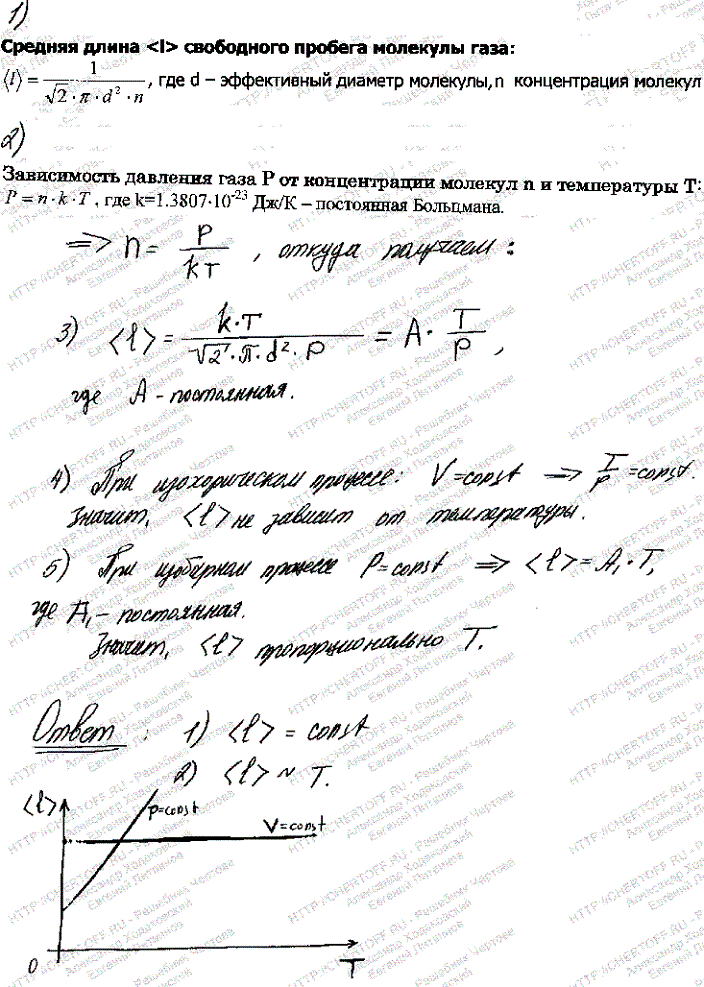 1)
Средняя длина <l> свободного пробега молекулы газа:
⟨l⟩ = 1 / (√2 · π · d² · n) , где d – эффективный диаметр молекулы, n концентрация молекул
2)
Зависимость давления газа P от концентрации молекул n и температуры T:
P = n · k · T , где k=1.3807·10⁻²³ Дж/К – постоянная Больцмана.
=> n = P / kT , откуда получаем :
3) <l> = k·T / (√2 · π · d² · P) = A · T / P ,
где A - постоянная.
4) При изохорическом процессе: V=const => T/P = const.
Значит, <l> не зависит от температуры.
5) При изобарном процессе P=const => <l> = A₁ · T,
где A₁ – постоянная.
Значит, <l> пропорционально T.
Ответ : 1) <l> = const
2) <l> ~ T.
<l>
p=const
V=const
0
T
HTTP://CHERTOFF.RU - Решебник Чертова
Александр Ходаковский
Евгений Литвинов